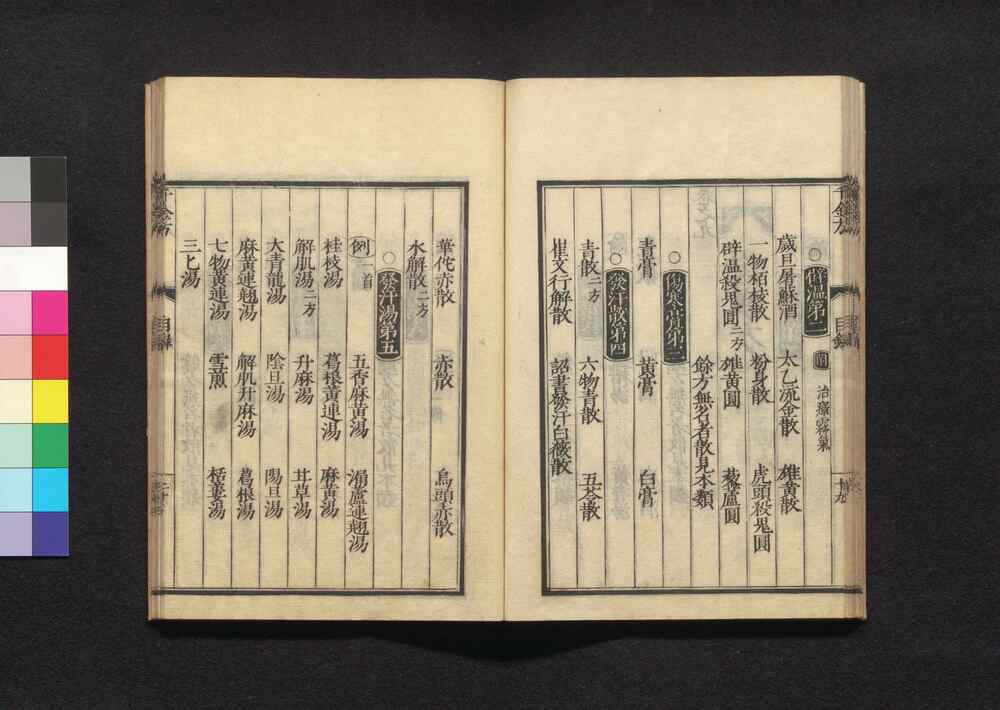 ○辟温第二 治瘴霧氣
歲旦屠蘇酒 太乙流金散 雄黃散
一物栢枝散 粉身散 虎頭殺鬼圓
辟温殺鬼圓二方 雄黃圓 藜蘆圓
餘方無名者散見本類
○傷寒膏第三
青膏 黃膏 白膏
○發汗散第四
青散二方 六物青散 五苓散
崔文行解散 詔書發汗白薇散
華佗赤散 赤散 烏頭赤散
水解散二方
○發汗湯第五
例一首 五香麻黃湯 漏蘆連翹湯
桂枝湯 葛根黃連湯 麻黃湯
解肌湯二方 升麻湯 甘草湯
大青龍湯 陰旦湯 陽旦湯
麻黃連翹湯 解肌升麻湯 葛根湯
七物黃連湯 雪煎 栝蔞湯
三匕湯